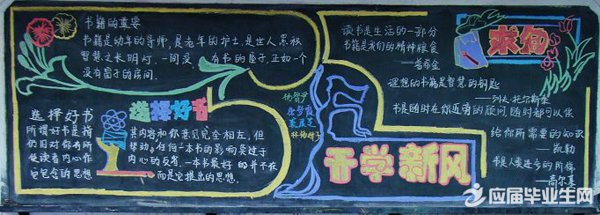 书籍的重要
书籍是幼年的导师,是老年的护士,是世人累积
智慧之长明灯.一间没有书的屋子,正如一个
没有窗子的房间.
选择好书
所谓好书是指
仍旧对你有所
使读者内心作
它包含的思想
选择好书
其内容和你意见完全相左,但
帮助.任何一本书的影响莫过于
内心的反省.一本书最好的并不在
而是它提出的思想.
开学新风
求知
读书是生活的一部分
书籍是我们的精神粮食
理想的书籍是智慧的钥匙
——列夫·托尔斯泰
书是随时在你近旁的顾问,随时都可以供
给你所需要的知识
——凯勒
书是人类进步的阶梯
——高尔基
应届毕业生网